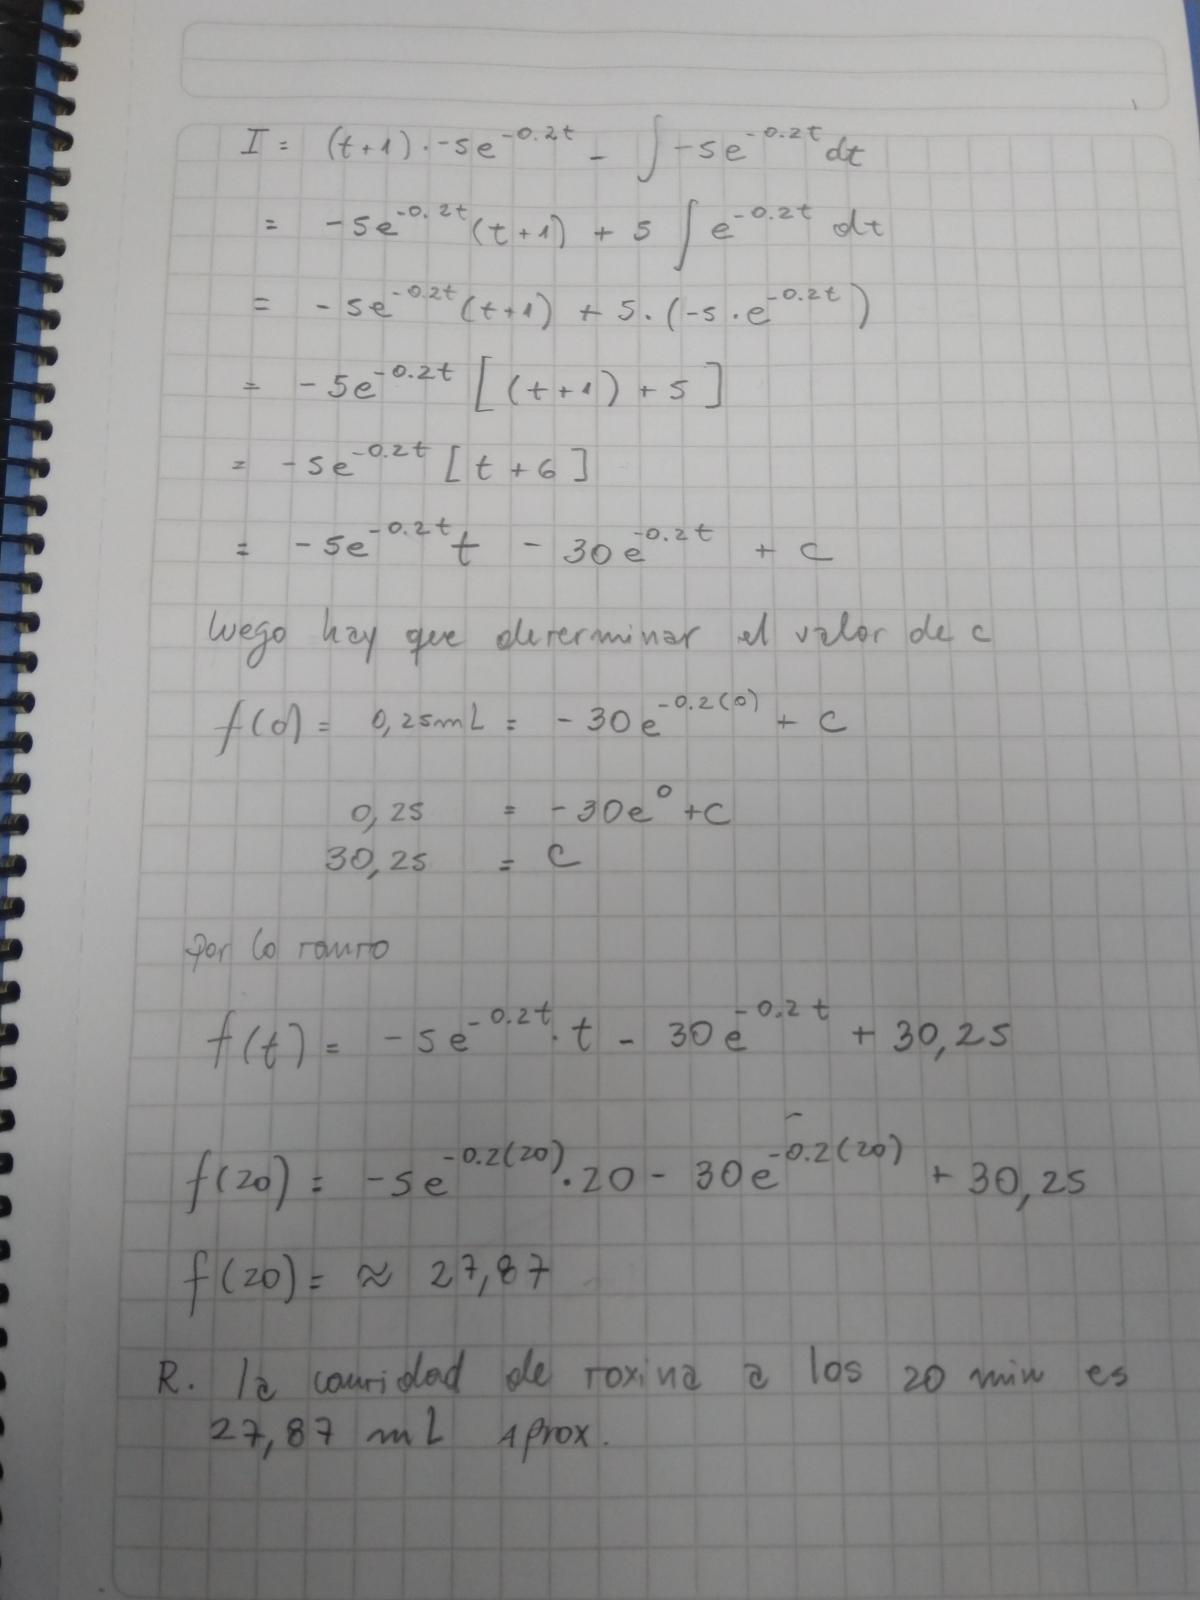 I = (t+1) · -5e^{-0.2t} - ∫ -5e^{-0.2t} dt
= -5e^{-0.2t} (t+1) + 5 ∫ e^{-0.2t} dt
= -5e^{-0.2t} (t+1) + 5 · (-5 · e^{-0.2t})
= -5e^{-0.2t} [(t+1) + 5]
= -5e^{-0.2t} [t + 6]
= -5e^{-0.2t} t - 30e^{-0.2t} + C
luego hay que determinar el valor de c
f(0) = 0,25mL = -30e^{-0.2(0)} + C
0,25 = -30e^0 + C
30,25 = C
Por lo tanto
f(t) = -5e^{-0.2t} · t - 30e^{-0.2t} + 30,25
f(20) = -5e^{-0.2(20)} · 20 - 30e^{-0.2(20)} + 30,25
f(20) = ≈ 27,87
R. la cantidad de toxina a los 20 min es
27,87 mL Aprox.